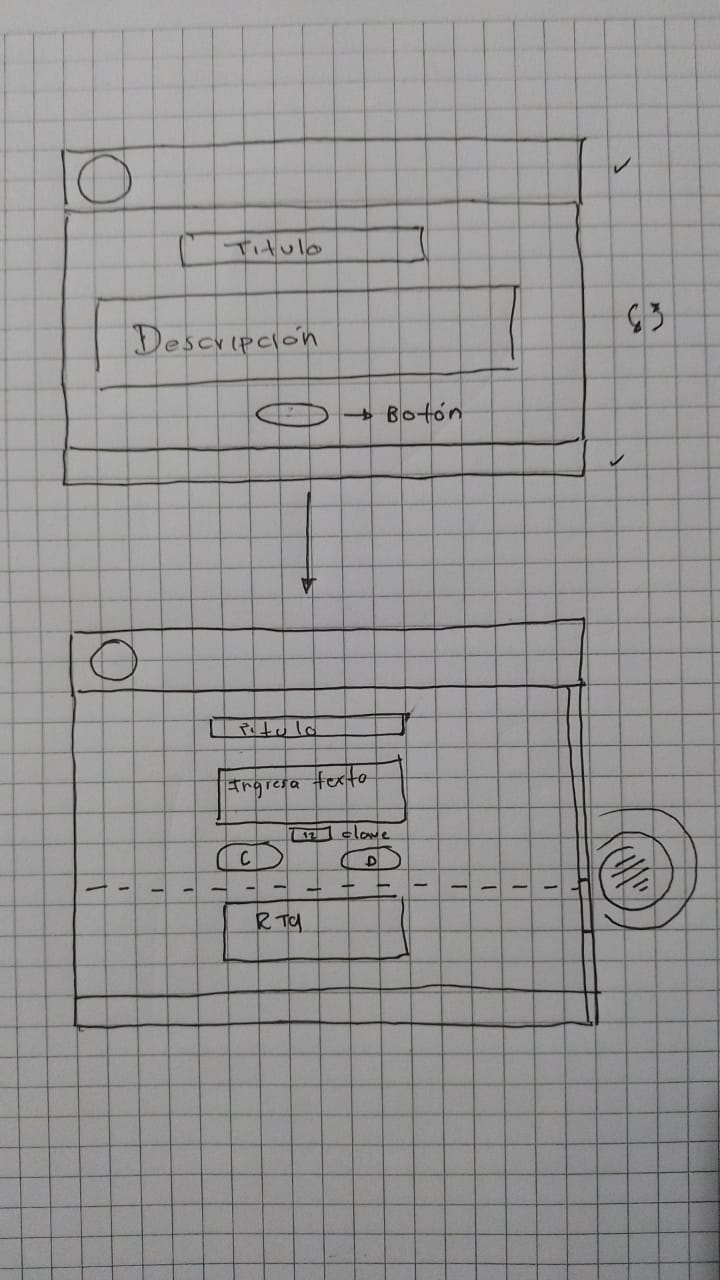 Titulo
Descripción
→ Botón
Titulo
Ingresa texto
12 clave
C D
RTa